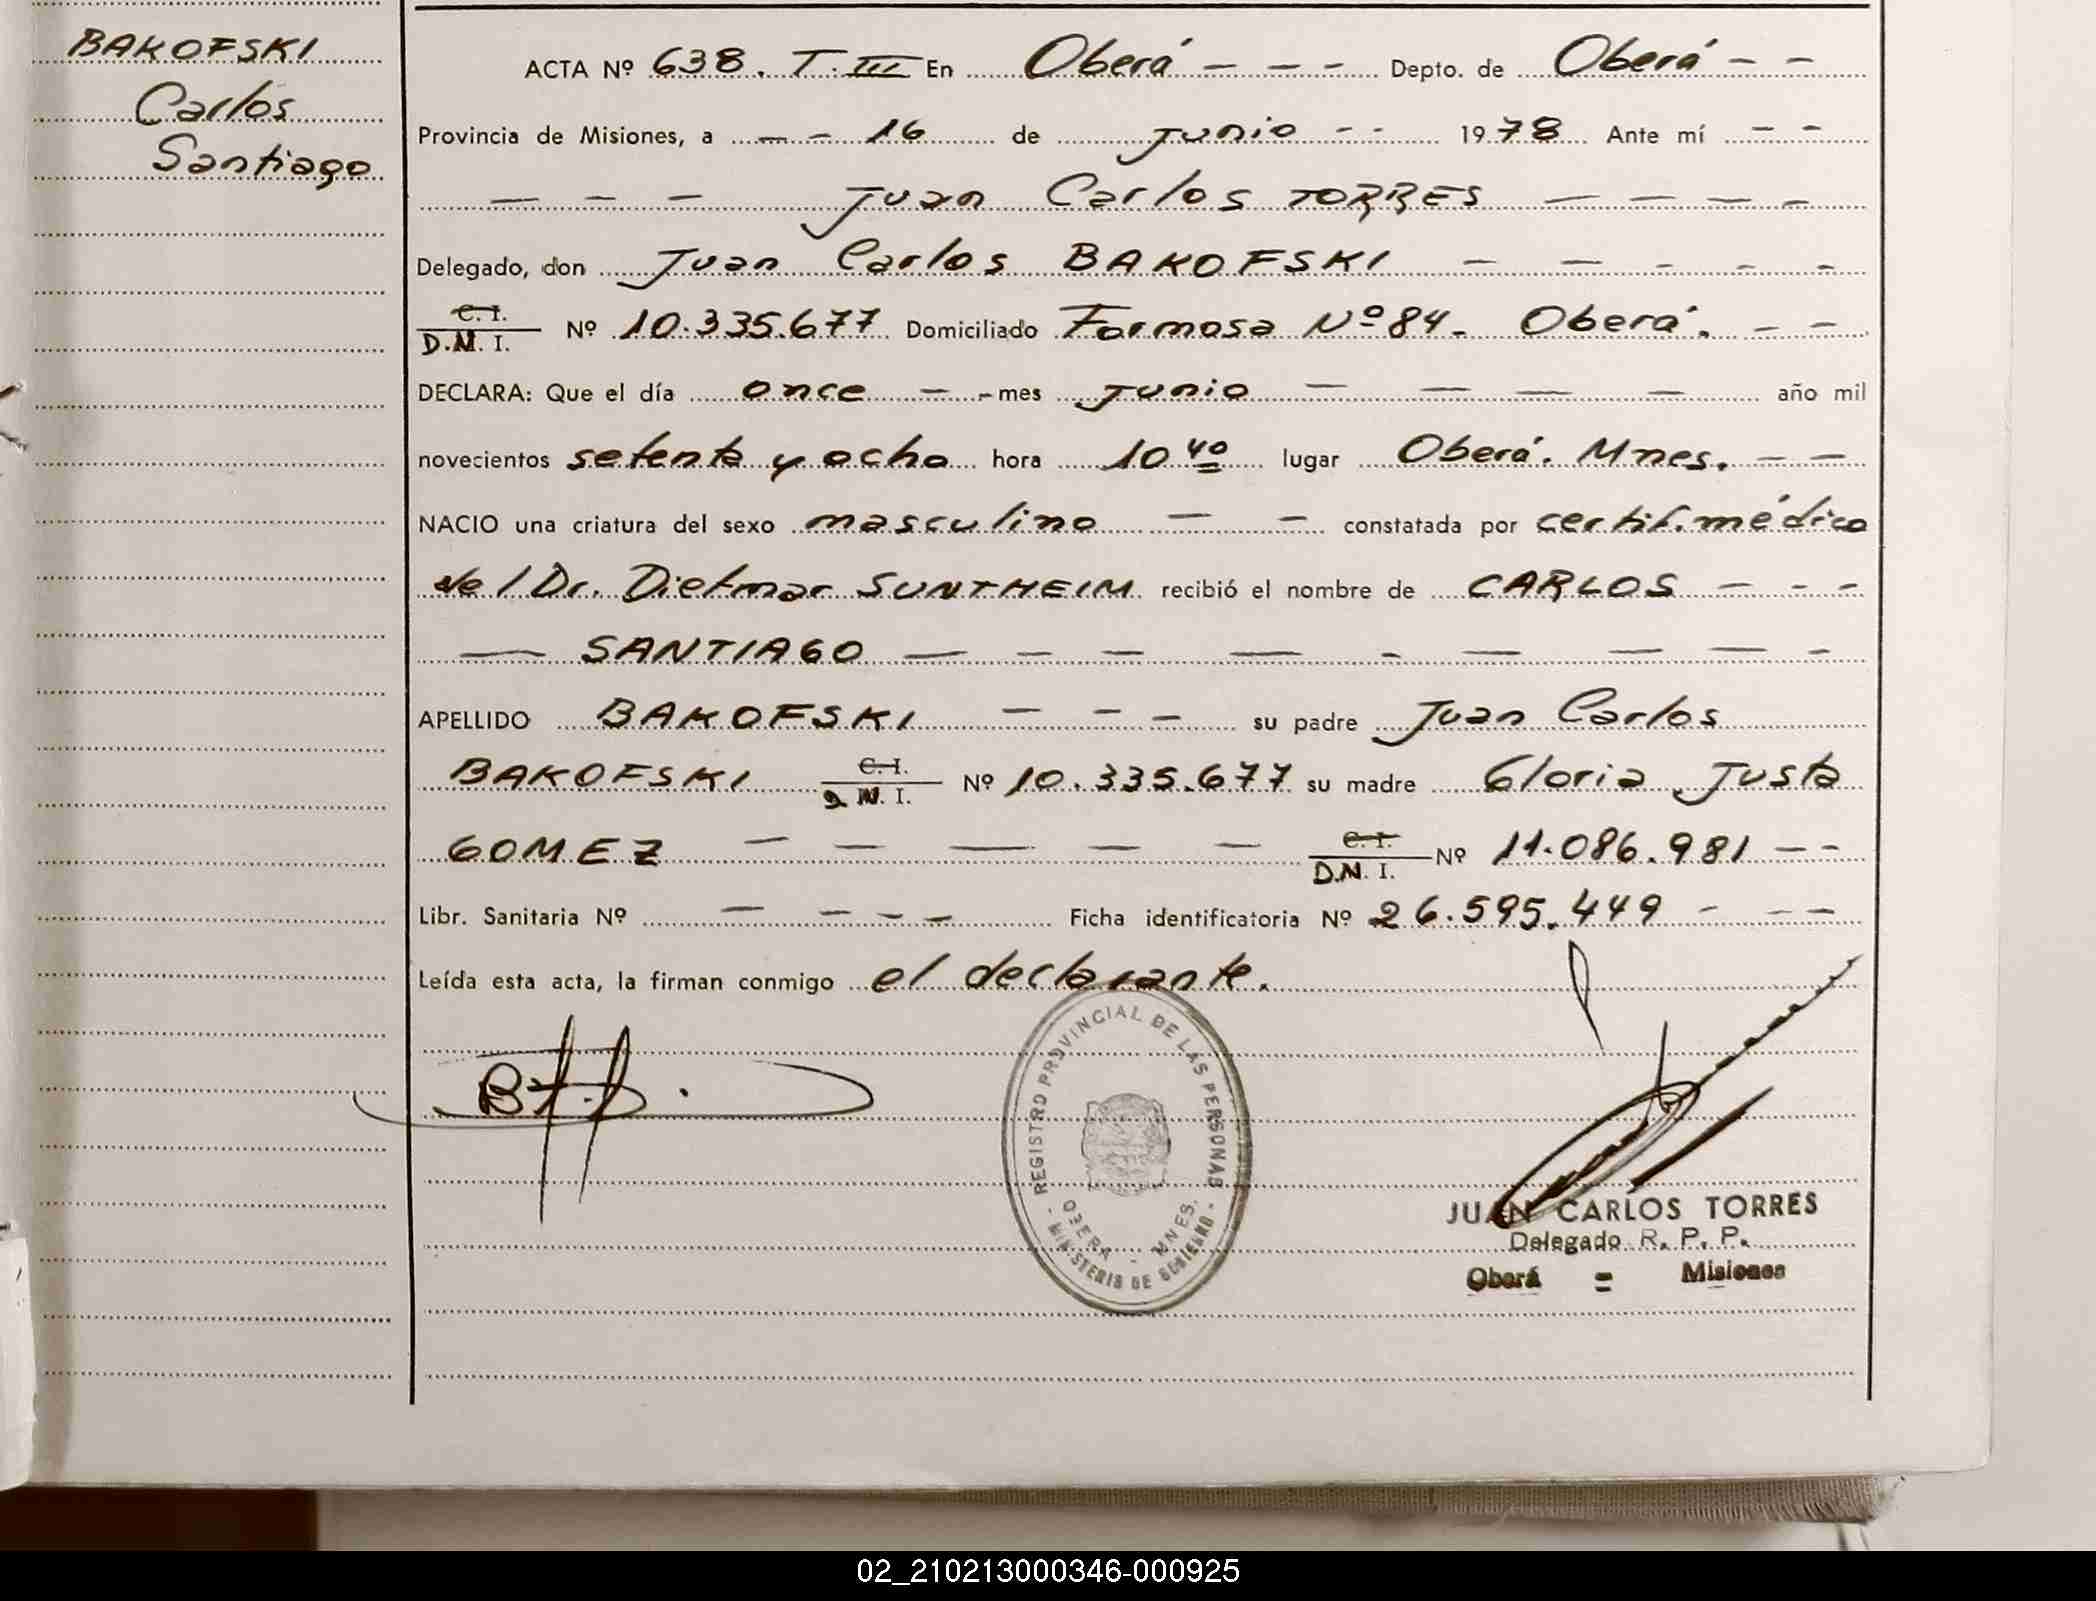 BAKOFSKI
Carlos
Santiago
ACTA Nº 638. T. III En Oberá - - - - Depto. de Oberá - -
Provincia de Misiones, a - - 16 de Junio - - 1978 Ante mí - -
- - - Juan Carlos TORRES - - - -
Delegado, don Juan Carlos BAKOFSKI - - - - -
C. I.
D.N. I. Nº 10.335.677 Domiciliado Formosa Nº 84. Oberá. - -
DECLARA: Que el día once - - mes Junio - - - - año mil
novecientos setenta y ocho hora 10 40 lugar Oberá. Mnes. - -
NACIO una criatura del sexo masculino - - constatada por certif. médico
del Dr. Dietmar SUNTHEIM recibió el nombre de CARLOS - - -
- SANTIAGO - - - - - - - - -
APELLIDO BAKOFSKI - - - su padre Juan Carlos
BAKOFSKI C. I. D.N. I. Nº 10.335.677 su madre Gloria Justa
GOMEZ - - - - - C. I. D.N. I. Nº 11.086.981 - -
Libr. Sanitaria Nº - - - - Ficha identificatoria Nº 26.595.449 - - -
Leída esta acta, la firman conmigo el declarante.
REGISTRO PROVINCIAL DE LAS PERSONAS
OBERA - MNES.
- MINISTERIO DE GOBIERNO -
JUAN CARLOS TORRES
Delegado R. P. P.
Oberá = Misiones
02_210213000346-000925